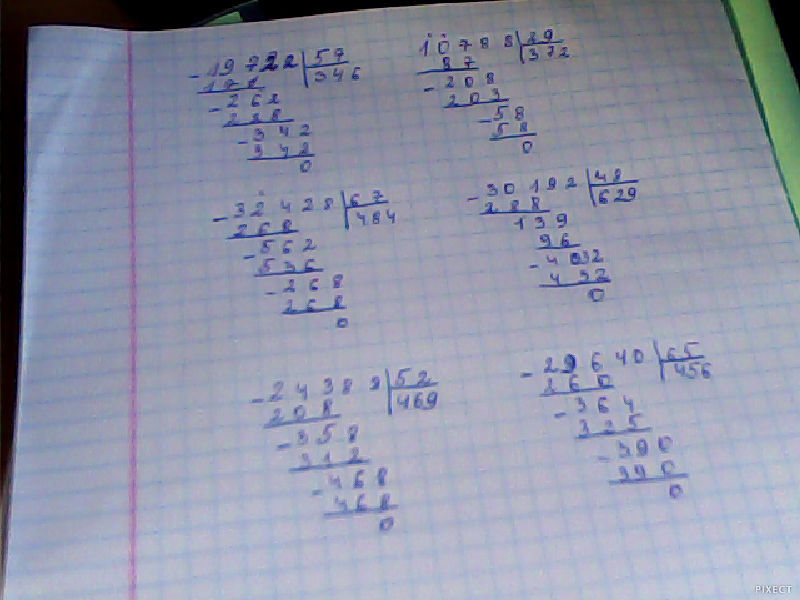 - 19722 | 57
171 | 346
- 262
228
- 342
342
0
10788 | 29
87 | 372
- 208
203
- 58
58
0
- 32428 | 67
268 | 484
- 562
536
- 268
268
0
- 30192 | 48
288 | 629
139
96
- 432
432
0
- 24388 | 52
208 | 469
- 358
312
- 468
468
0
- 29640 | 65
260 | 456
- 364
325
- 390
390
0
PIXECT